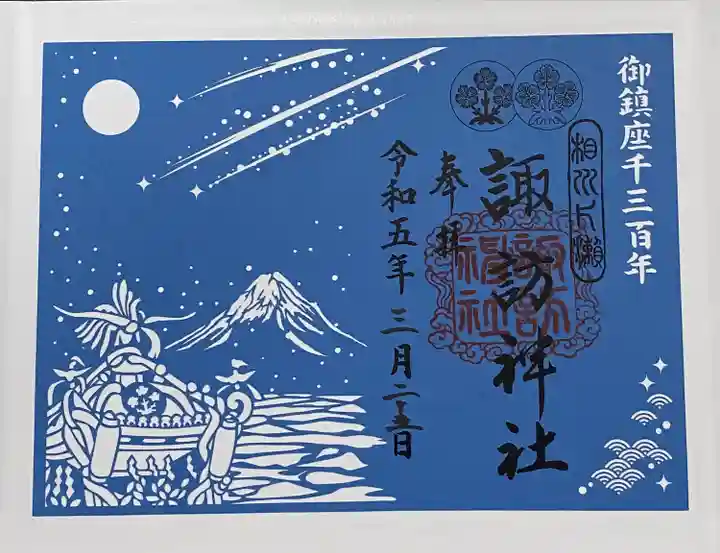 御鎮座千三百年
相州片瀬
諏訪神社
諏訪
神社
奉拝
令和五年三月二十五日